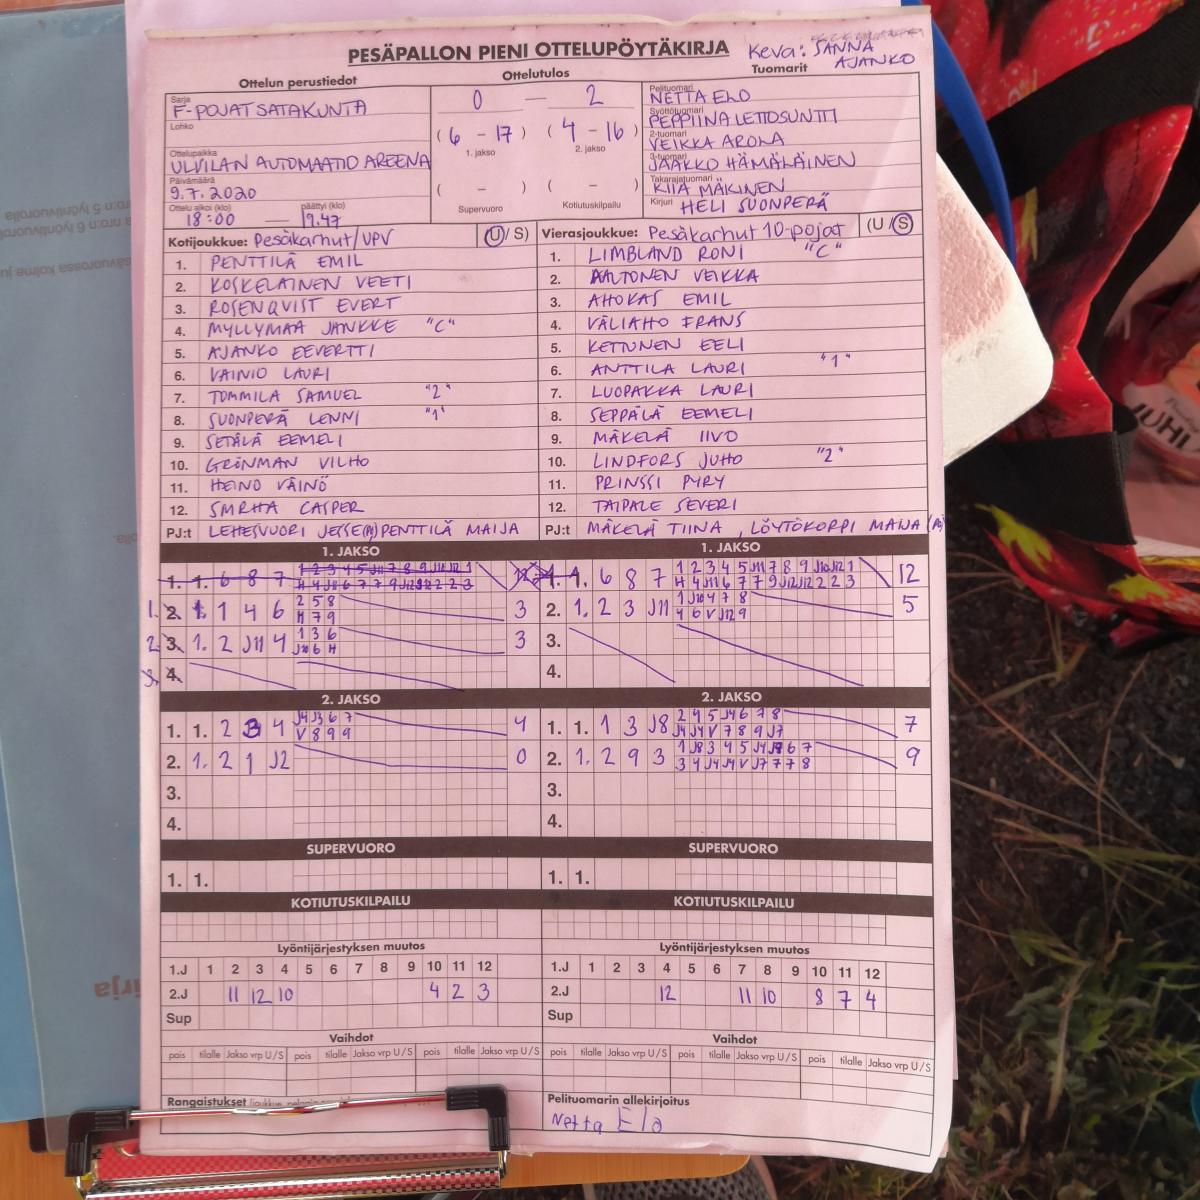 PESÄPALLON PIENI OTTELUPÖYTÄKIRJA
Keva: SANNA AJANKO
Ottelun perustiedot
Ottelutulos
Tuomarit
Sarja
F-POJAT SATAKUNTA
Lohko
Ottelupaikka
ULVILAN AUTOMAATIO AREENA
Päivämäärä
9.7.2020
Ottelu alkoi (klo) päättyi (klo)
18:00 — 19.47
0 — 2
(6 - 17) (4 - 16)
1. jakso 2. jakso
( - ) ( - )
Supervuoro Kotiutuskilpailu
Pelituomari
NETTA ELO
Syöttötuomari
PEPPIINA LEITOSUNTTI
2-tuomari
VEIKKA AROLA
3-tuomari
JAAKKO HÄMÄLÄINEN
Takarajatuomari
KIIA MÄKINEN
Kirjuri HELI SUONPERÄ
Kotijoukkue: Pesäkarhut/UPV (U/S)
1. PENTTILÄ EMIL
2. KOSKELAINEN VEETI
3. ROSENQVIST EVERT
4. MYLLYMAA JANKKE "C"
5. AJANKO EEVERTTI
6. VAINIO LAURI
7. TOMMILA SAMUEL "2"
8. SUONPERÄ LENNI "1"
9. SETÄLÄ EEMELI
10. GRÖNMAN VILHO
11. HEINO VÄINÖ
12. SMRHA CASPER
PJ:t LEHESVUORI JESSE(A) PENTTILÄ MAIJA
Vierasjoukkue: Pesäkarhut 10-pojat (U/S)
1. LIMBLAND RONI "C"
2. AALTONEN VEIKKA
3. AHOKAS EMIL
4. VÄLIAHO FRANS
5. KETTUNEN EELI
6. ANTTILA LAURI "1"
7. LUOPAKKA LAURI
8. SEPPÄLÄ EEMELI
9. MÄKELÄ IIVO
10. LINDFORS JUHO "2"
11. PRINSSI PYRY
12. TAIPALE SEVERI
PJ:t MÄKELÄ TIINA, LÖYTÖKORPI MAIJA
1. JAKSO
1. 1. 6 8 7
1. 2. 1 4 6 2 5 8 3
H 7 9
2. 3. 1. 2 J11 4 1 3 6 3
4.
1. JAKSO
1. 1. 6 8 7 1 2 3 4 5 J11 7 8 9 J10 J12 1 12
H 4 J11 6 7 7 9 J12 J12 2 2 3
2. 1. 2 3 J11 1 J10 4 7 8 5
4 6 V J12 9
3.
4.
2. JAKSO
1. 1. 2 3 4 J4 J3 6 7 4
V 8 9 9
2. 1. 2 1 J2 0
3.
4.
2. JAKSO
1. 1. 1 3 J8 2 4 5 J4 6 7 8 7
J4 J4 V 7 8 9 J7
2. 1. 2 9 3 9
3 4 J4 J4 V J7 7 7 8
3.
4.
SUPERVUORO
1. 1.
SUPERVUORO
1. 1.
KOTIUTUSKILPAILU
KOTIUTUSKILPAILU
Lyöntijärjestyksen muutos
1.J 1 2 3 4 5 6 7 8 9 10 11 12
2.J 11 12 10 4 2 3
Sup
Lyöntijärjestyksen muutos
1.J 1 2 3 4 5 6 7 8 9 10 11 12
2.J 12 11 10 8 7 4
Sup
Vaihdot
pois tilalle Jakso vrp U/S pois tilalle Jakso vrp U/S pois tilalle Jakso vrp U/S
Vaihdot
pois tilalle Jakso vrp U/S pois tilalle Jakso vrp U/S pois tilalle Jakso vrp U/S
Rangaistukset
Pelituomarin allekirjoitus
Netta Elo
JUHL